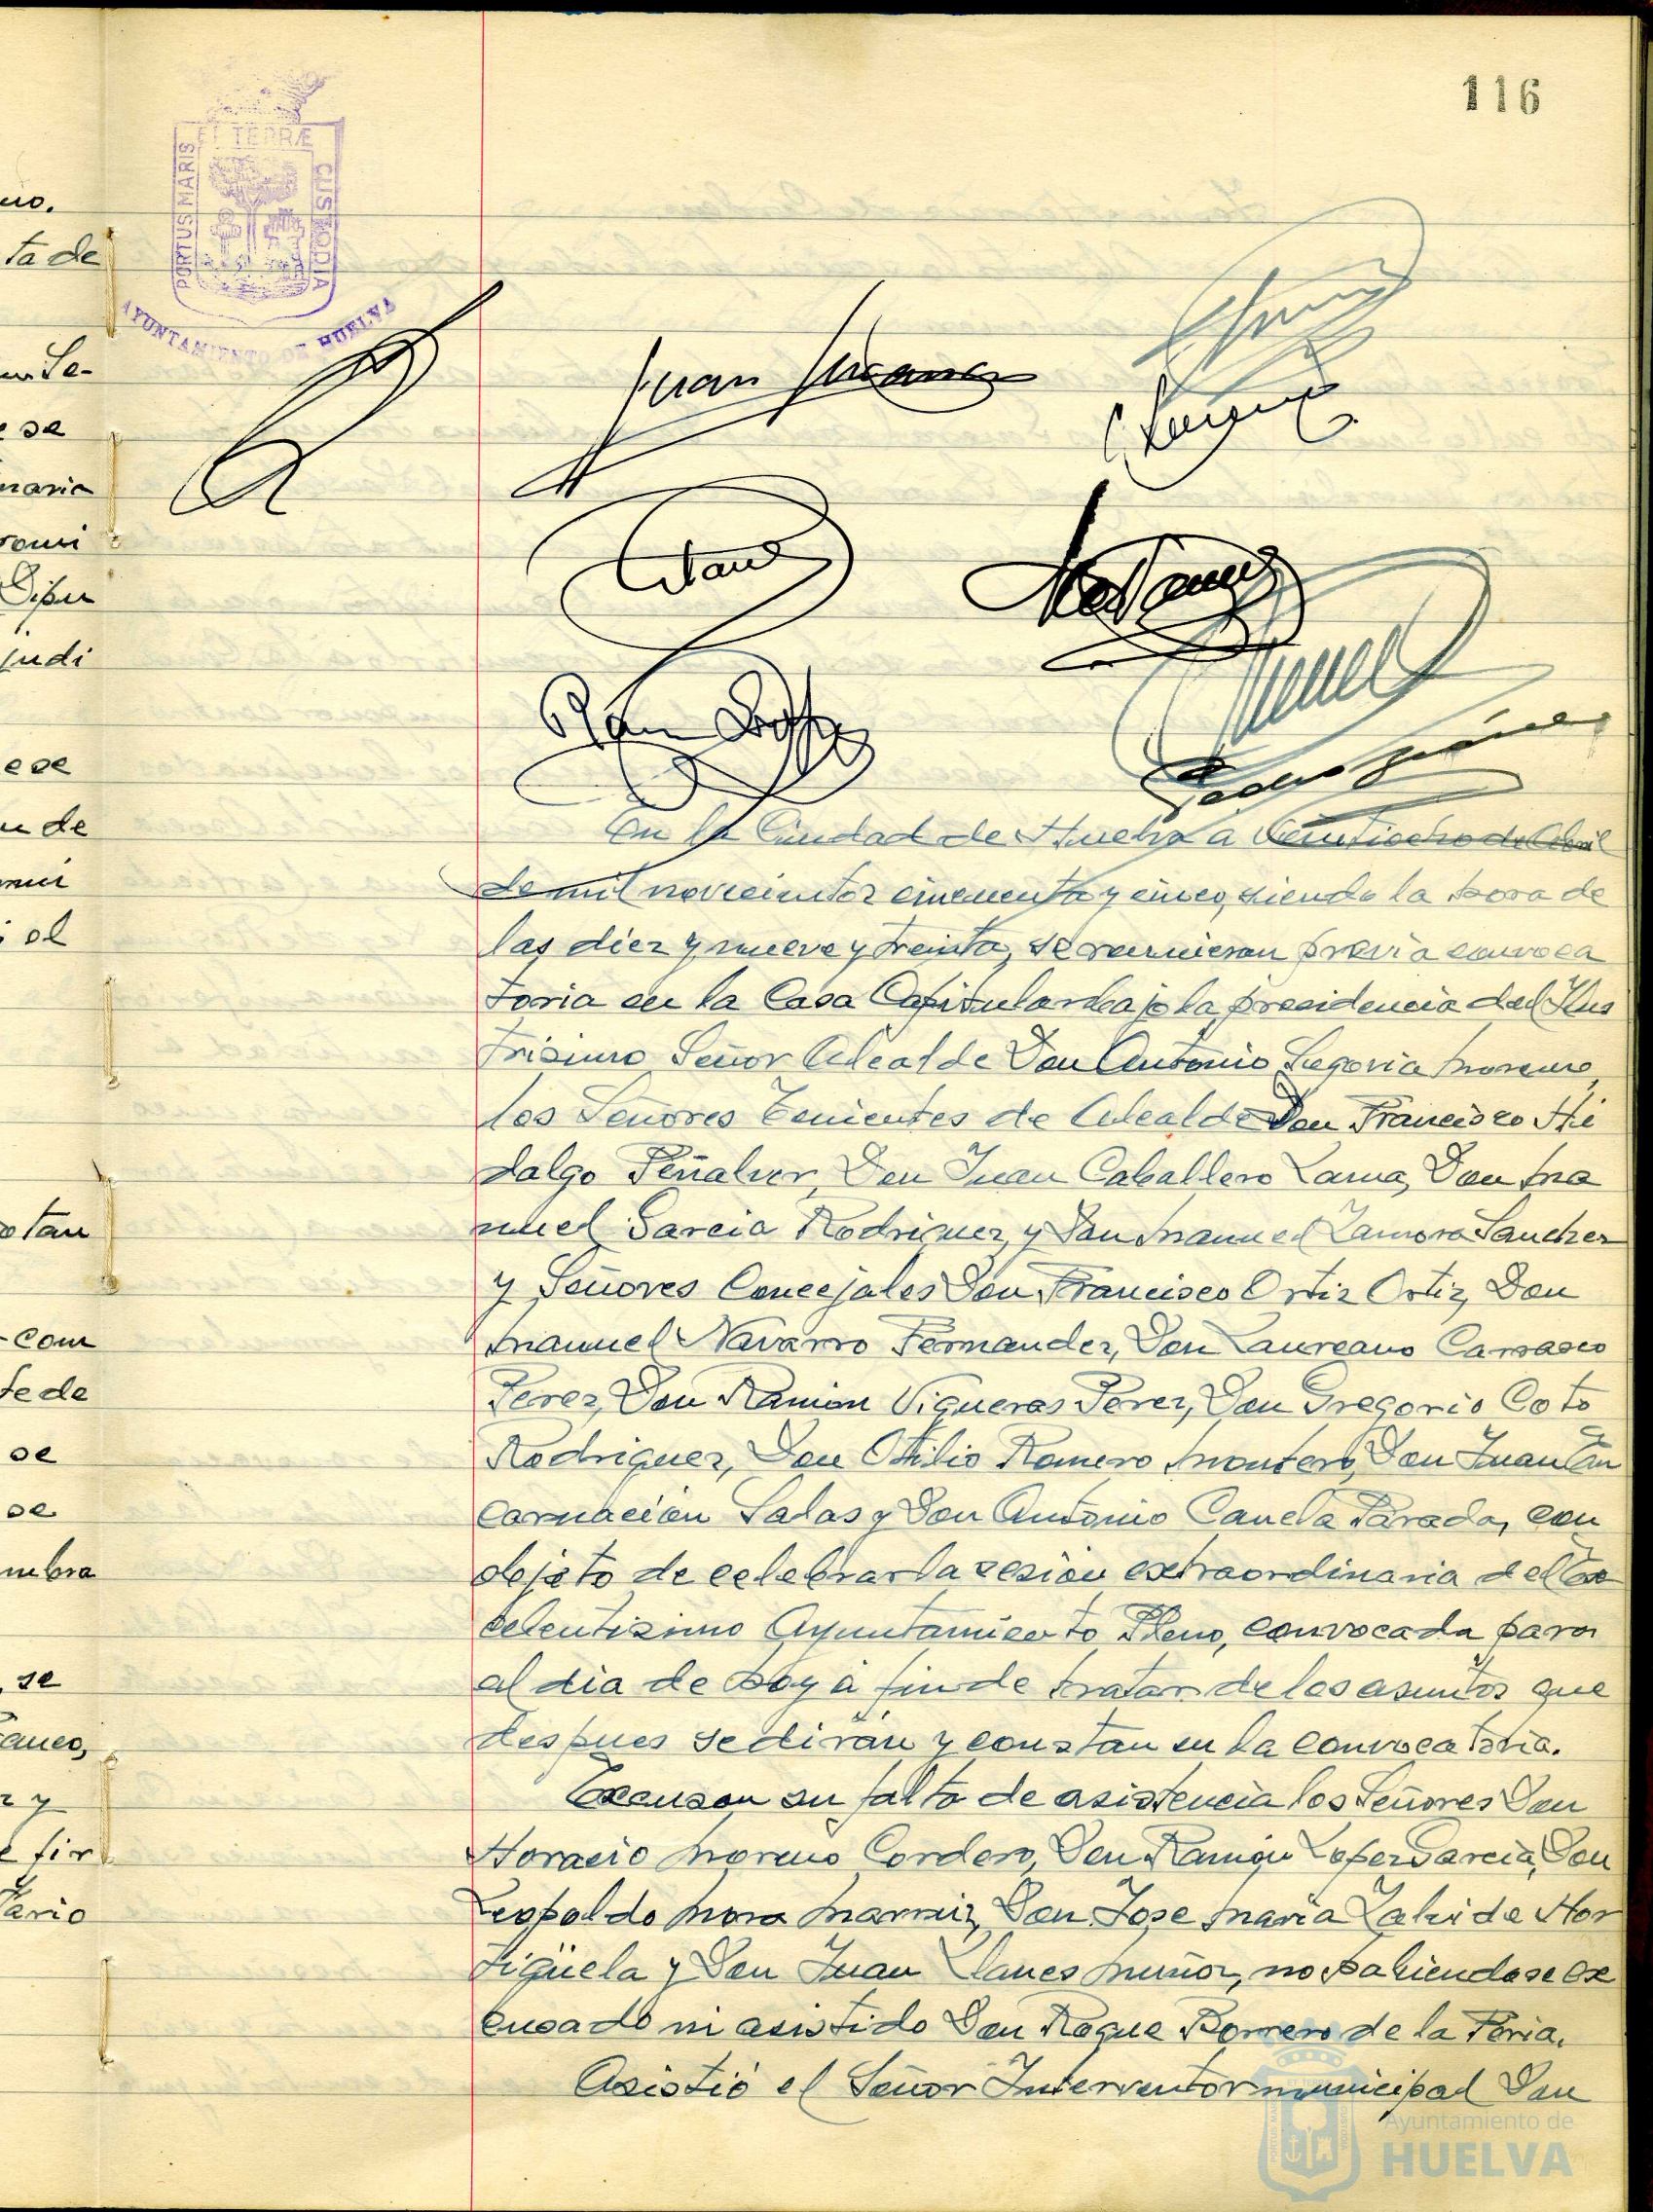 116
ET TERRÆ
PORTUS MARIS
CUSTODIA
AYUNTAMIENTO DE HUELVA
no.
ta de
Se-
e se
naria
Dipu
judi
ese
de
el
otan
com
te de
se
se
mbra
se
y
fir
tario
Juan
Ramon Lopez
Pedro
En la Ciudad de Huelva a veintiocho de Abril
de mil novecientos cincuenta y cinco, siendo la hora de
las diez y nueve y treinta, se reunieron previa convoca
toria en la Casa Capitular bajo la presidencia del Ilus
trisimo Señor Alcalde Don Antonio Segovia Moreno,
los Señores Tenientes de Alcalde Don Francisco Hi
dalgo Peñalver, Don Juan Caballero Lama, Don Ma
nuel Garcia Rodriguez, y Don Manuel Zamora Sanchez
y Señores Concejales Don Francisco Ortiz Ortiz, Don
Manuel Navarro Fernandez, Don Laureano Carrasco
Perez, Don Ramón Vigueras Perez, Don Gregorio Coto
Rodriguez, Don Otilio Romero Montero, Don Juan En
carnación Salas y Don Antonio Canela Parada, con
objeto de celebrar la sesión extraordinaria del Ex
celentisimo Ayuntamiento Pleno, convocada para
el dia de hoy a fin de tratar de los asuntos que
despues se dirán y constan en la convocatoria.
Excusan su falta de asistencia los Señores Don
Horacio Moreno Cordero, Don Ramón Lopez Garcia, Don
Leopoldo Mora Don Jose Maria Zalvide Hor
tigüela y Don Juan Llanes Muñoz, no habiendose ex
cusado ni asistido Don Roque Borrero de la Feria.
Asistió el Señor Interventor municipal Don
Ayuntamiento de
HUELVA